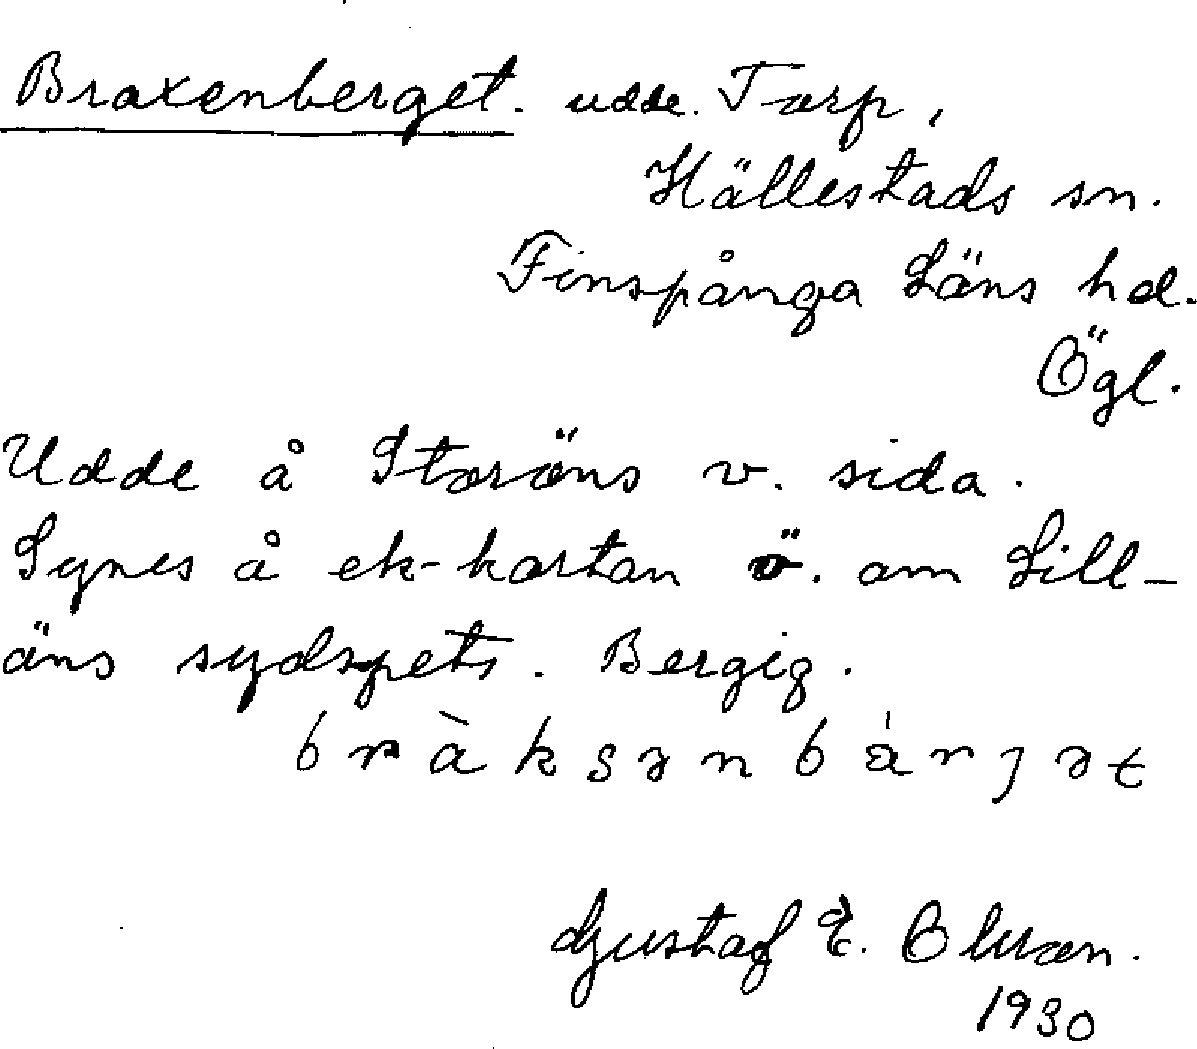 Braxenberget. udde. Torp,
Hällestads sn.
Finspånga Läns hd.
Ögl.
Udde å Storöns v. sida.
Synes å ek-kartan ö. om Lill-
öns sydspets. Bergig.
Gustaf E.
1930